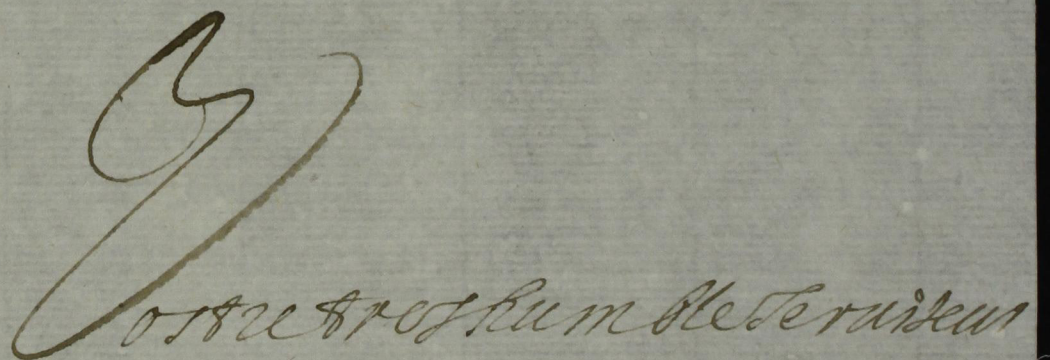 Vostre tres humble Seruiteur